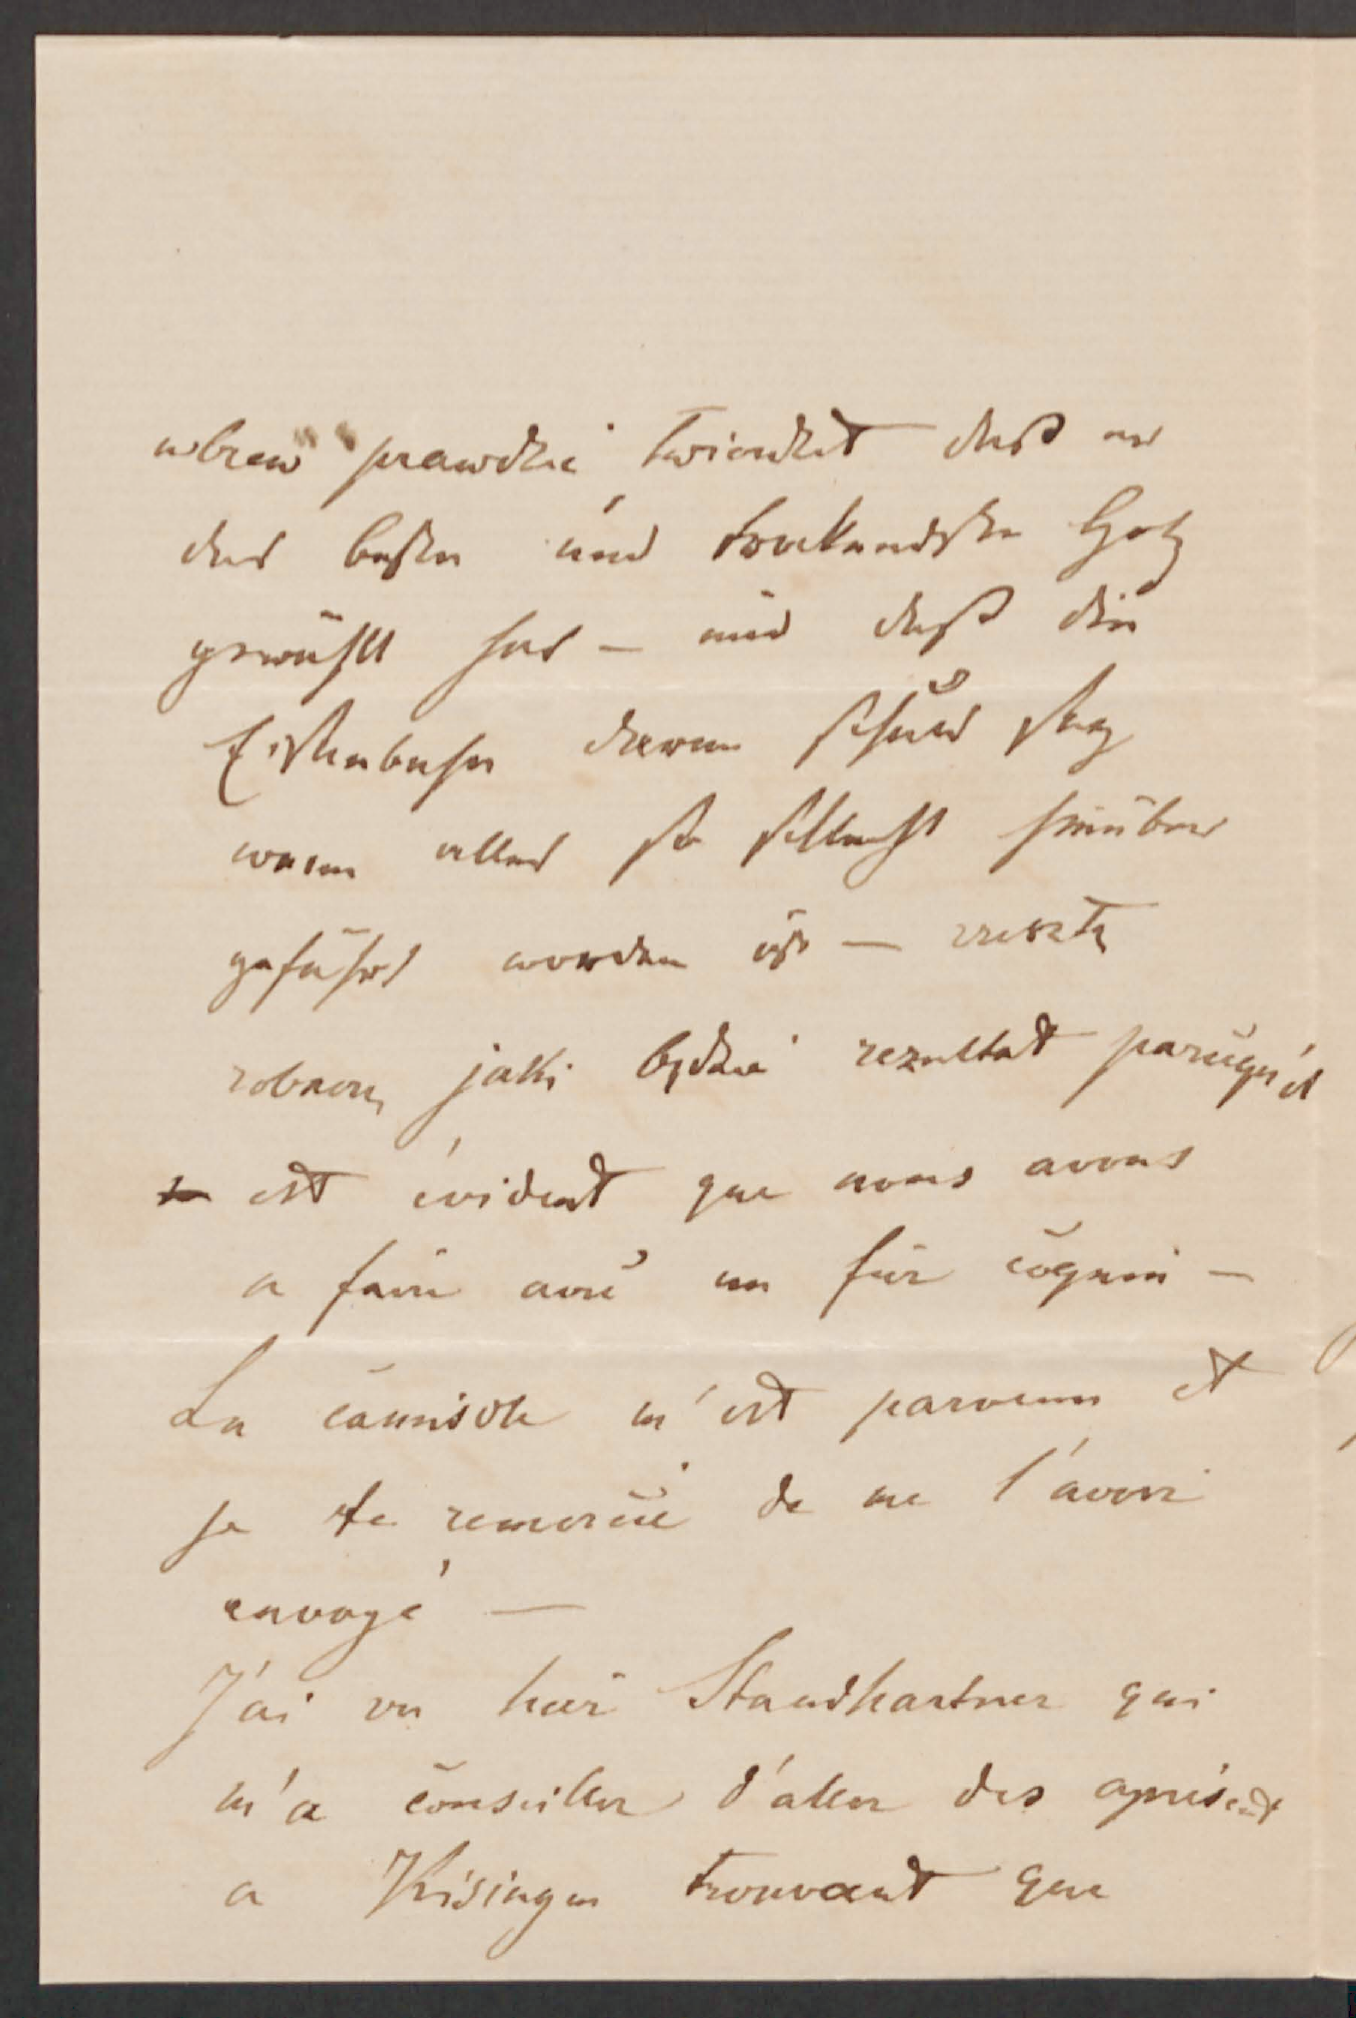 wbrew prawdzie twierdzt daß er
das beste und trockendste Holz
gewählt hat – und daß die
Eisenbahn daran schuld sey
wenn alles so schlecht hinüber
geführt worden ist – zreszta
zobaczę jaki będzie rezultat parcequ'il
est évident que nous avons
a faire avec un fier coquin –
La camisole m'est parvenu et
je te remercie de me l'avoir
envoyé –
J'ai vu hier Standhartner qui
m'a conseiller d'aller des aprésent
a Kisingen trouvant que